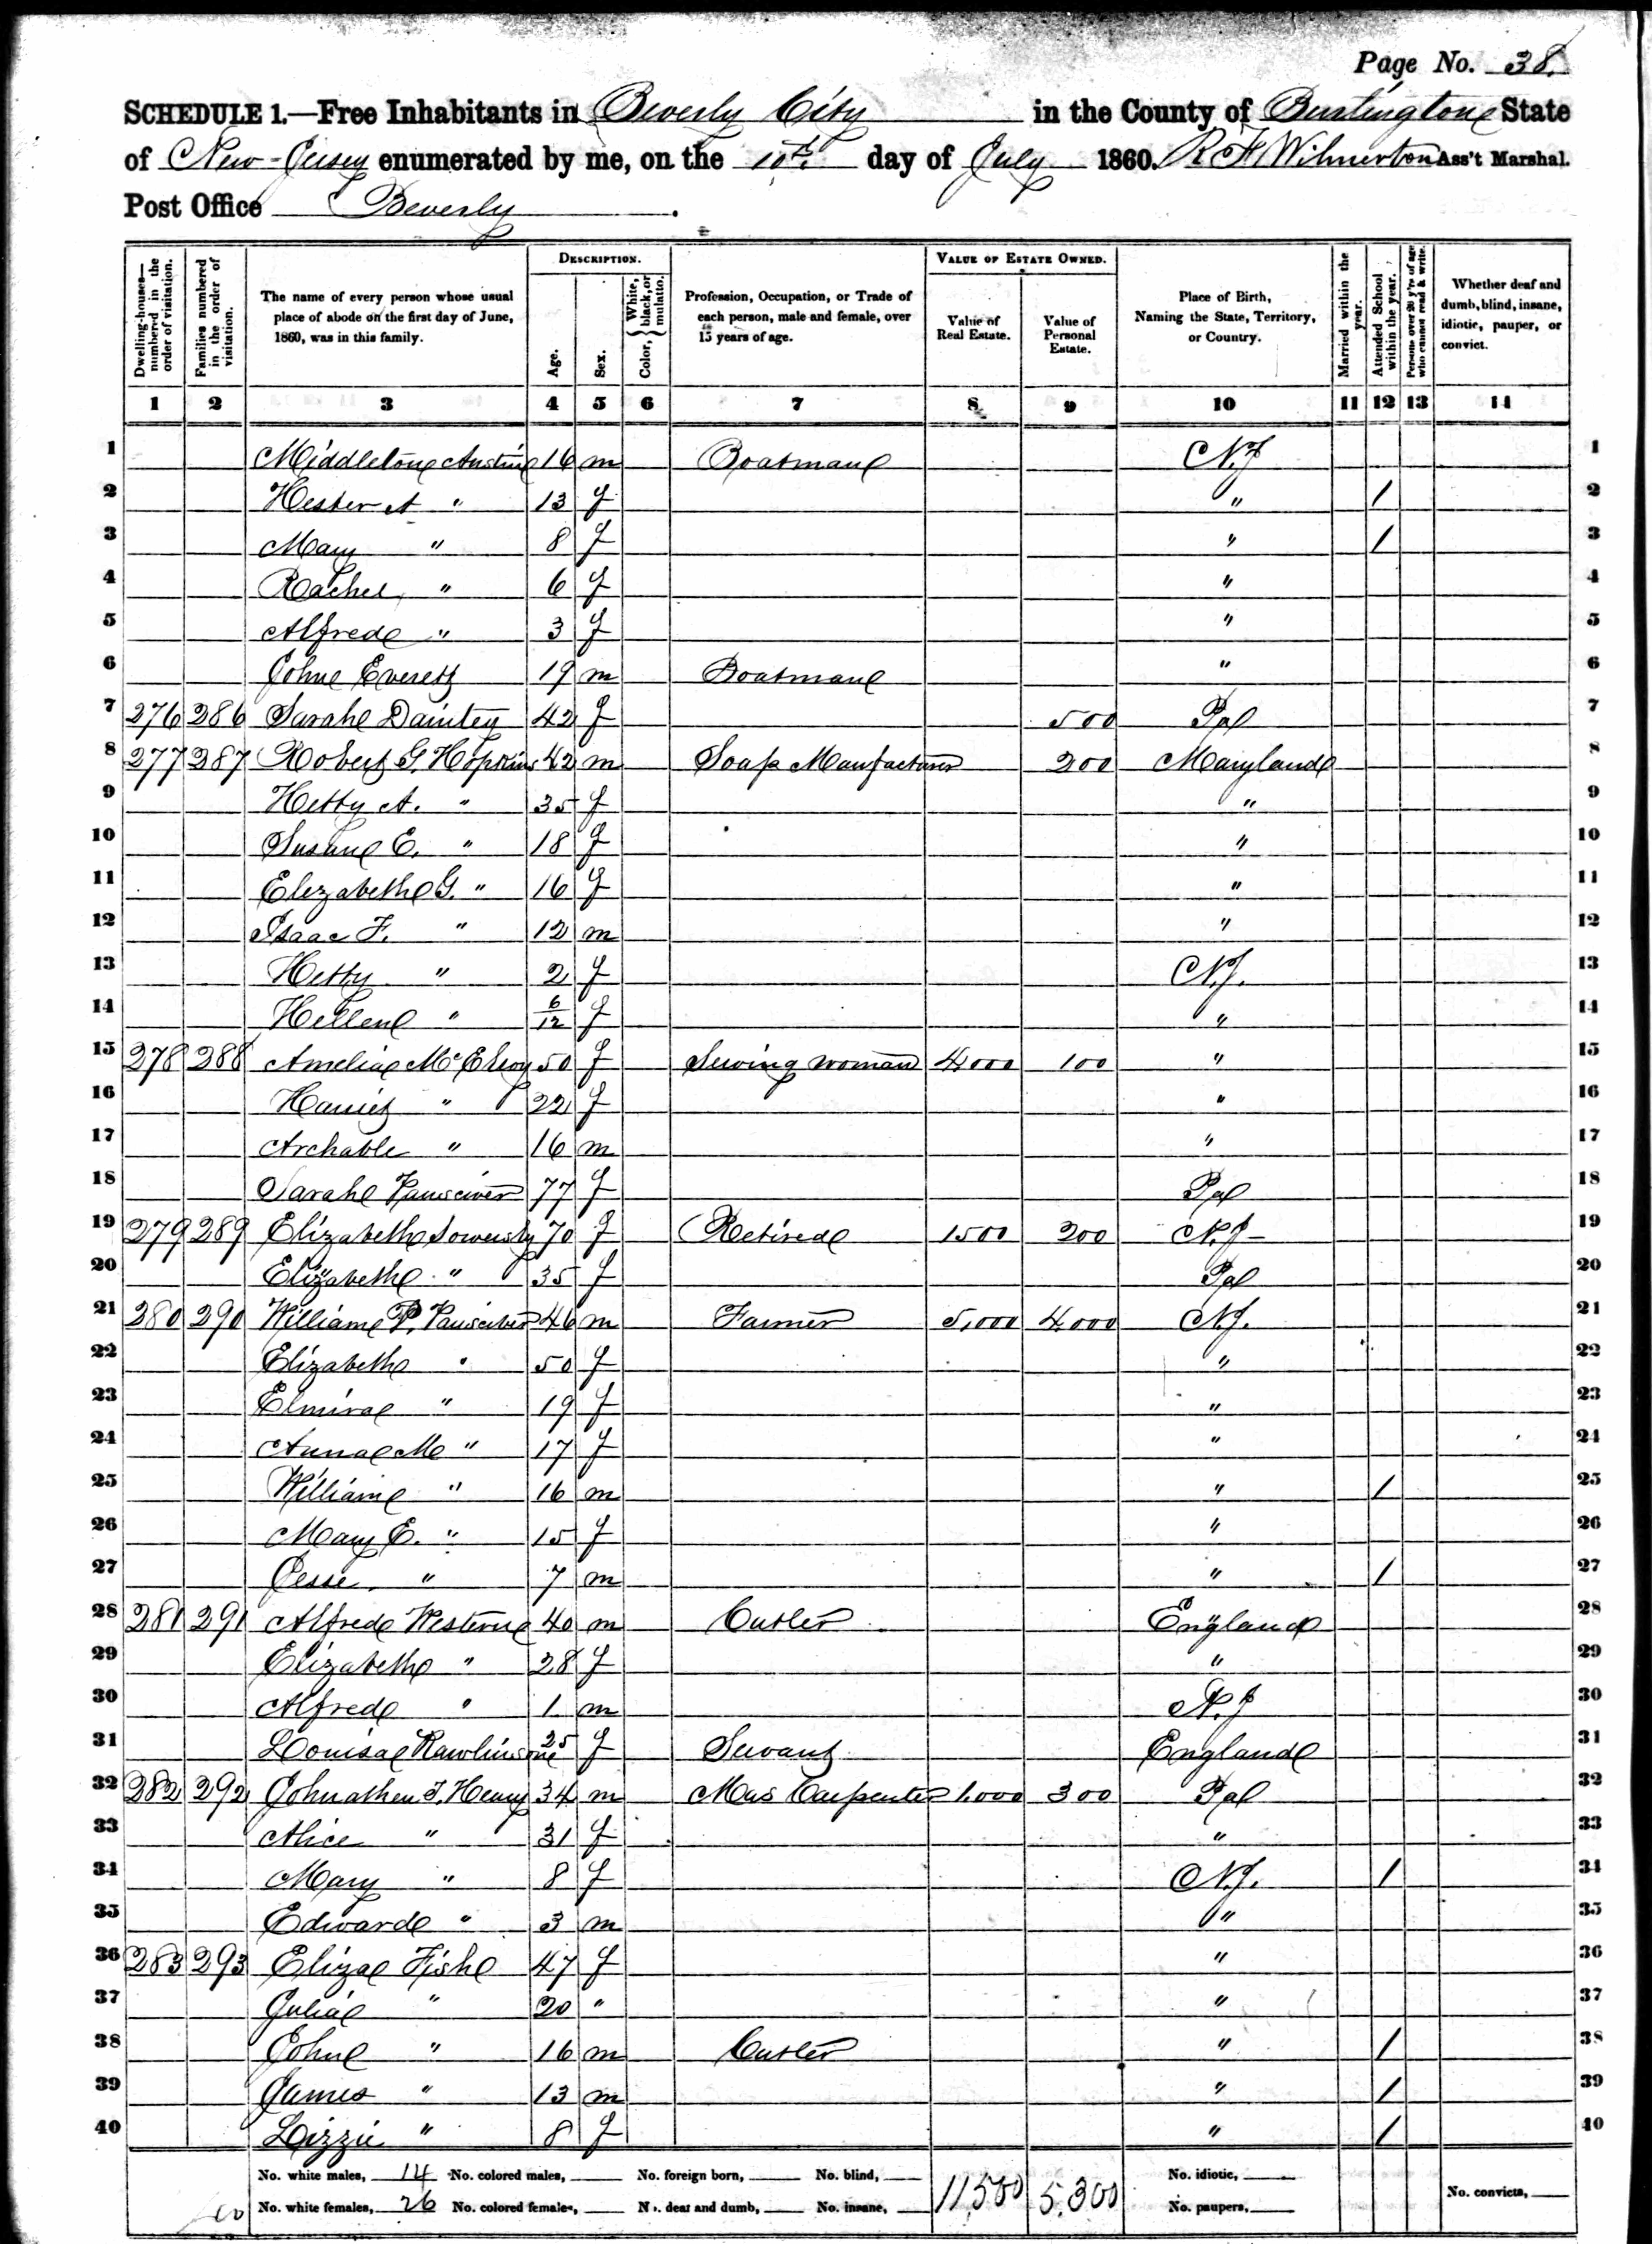 Page No. 38.
SCHEDULE 1.—Free Inhabitants in Beverly City in the County of Burlington State
of New-Jersey enumerated by me, on the 10th day of July 1860. R F Wilmerton Ass't Marshal.
Post Office Beverly.
Dwelling-houses—numbered in the order of visitation. Families numbered in the order of visitation. The name of every person whose usual place of abode on the first day of June, 1860, was in this family. DESCRIPTION. Age. Sex. Color, {White, black, or mulatto. Profession, Occupation, or Trade of each person, male and female, over 15 years of age. VALUE OF ESTATE OWNED. Value of Real Estate. Value of Personal Estate. Place of Birth, Naming the State, Territory, or Country. Married within the year. Attended School within the year. Persons over 20 y'rs of age who cannot read & write. Whether deaf and dumb, blind, insane, idiotic, pauper, or convict.
1 2 3 4 5 6 7 8 9 10 11 12 13 14
1 Middleton Austin 16 m Boatman N.J 1
2 Hester A " 13 f " / 2
3 Mary " 8 f " / 3
4 Rachel " 6 f " 4
5 Alfred " 3 f " 5
6 John Everett 19 m Boatman " 6
7 276 286 Sarah Daintey 42 f 500 Pa 7
8 277 287 Robert G. Hopkins 42 m Soap Manufacturer 200 Maryland 8
9 Hetty A. " 35 f " 9
10 Susan E. " 18 f " 10
11 Elizabeth G. " 16 f " 11
12 Isaac F. " 12 m " 12
13 Hetty " 2 f N.J. 13
14 Hellen " 6/12 f " 14
15 278 288 Amelia McElroy 50 f Sewing woman 4000 100 " 15
16 Harriet " 22 f " 16
17 Archable " 16 m " 17
18 Sarah Vansciver 77 f Pa 18
19 279 289 Elizabeth Sowersby 70 f Retired 1500 200 N.J- 19
20 Elizabeth " 35 f Pa 20
21 280 290 William P. Vansciver 46 m Farmer 5,000 4000 N.J. 21
22 Elizabeth " 50 f " 22
23 Elmira " 19 f " 23
24 Anna M " 17 f " 24
25 William " 16 m " / 25
26 Mary E. " 15 f " 26
27 Jesse. " 7 m " / 27
28 281 291 Alfred Western 40 m Cutler England 28
29 Elizabeth " 28 f " 29
30 Alfred " 1 m N.J 30
31 Louisa Rawlinson 25 f Servant England 31
32 282 292 Johnathen T. Henry 34 m Mas Carpenter 1,000 300 Pa 32
33 Alice " 31 f " 33
34 Mary " 8 f N.J. / 34
35 Edward " 3 m " 35
36 283 293 Eliza Fish 47 f " 36
37 Julia " 20 " " 37
38 John " 16 m Cutler " / 38
39 James " 13 m " / 39
40 Lizzie " 8 f " / 40
No. white males, 14 No. colored males, No. foreign born, No. blind, 11,500 5,300 No. idiotic,
No. white females, 26 No. colored females, No. deaf and dumb, No. insane, No. paupers, No. convicts,